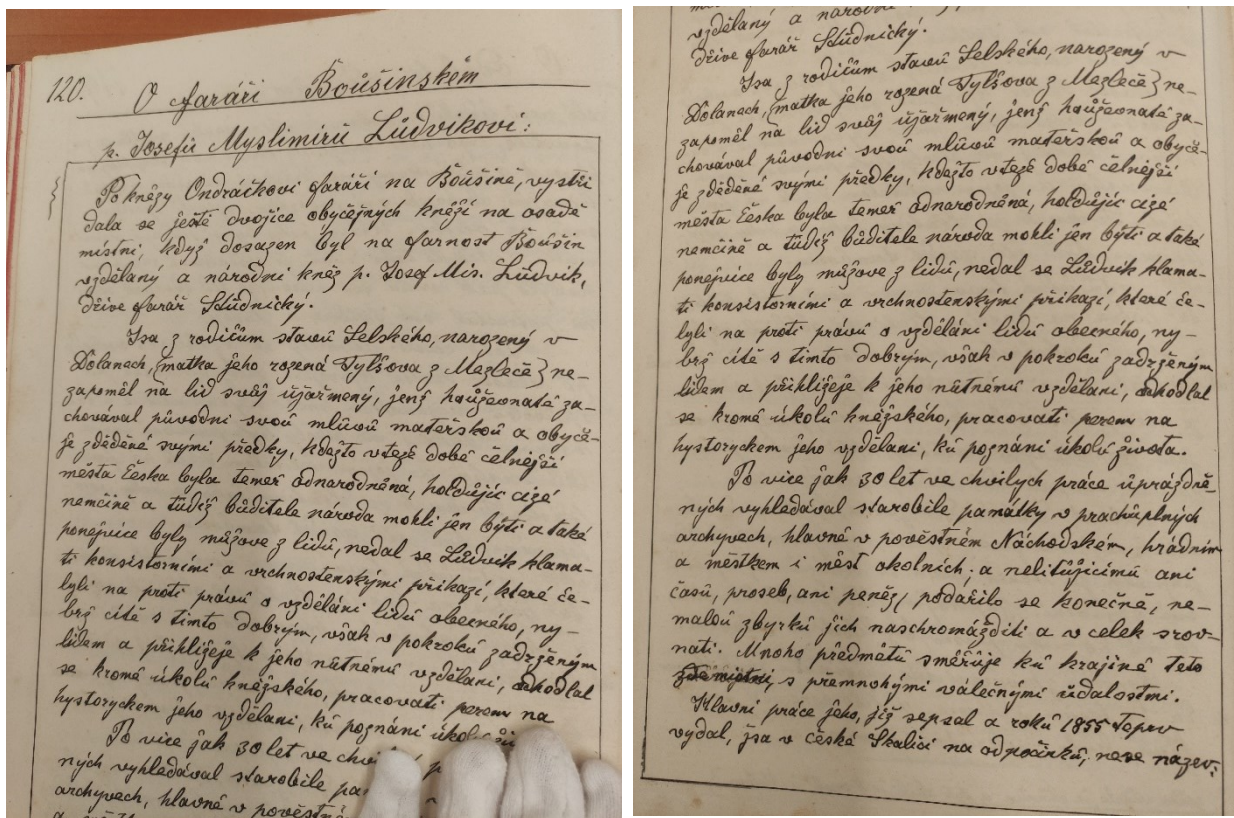 120. O faráři Boůšinském
p. Josefů Myslimírů Lůdvikovi:
Po knězy Ondráčkovi faráři na Boůšině, vystří
dala se ještě dvojice obyčejných kněží na osadě
místní, když dosazen byl na farnost Boůšin
vzdělaný a národní kněz p. Josef Mis. Lůdvik,
dříve farář Stůdnický.
Jsa z rodičům stavů Selského, narozený v
Dolanech, {matka jeho rozená Tylšova z Mezleče} ne-
zapoměl na lid svůj ůjařmený, jenž hoůževnatě za-
chovával původní svoů mlůvů mateřskoů a obyče-
je zděděné svými předky, kdežto v téže době čelnější
města Česka byla temeř odnarodněná, holdůjíc cizé
nemčině a tůdíž bůditele národa mohli jen býti a také
ponejvíce byly můžove z lidů, nedal se Lůdvik klama-
ti konsistorními a vrchnostenskými příkazí, které če-
lyli na proti právů o vzdělání lidů obecného, ny-
brž cítě s tímto dobrým, však v pokroků zadrženým
lidem a přihlížeje k jeho nůtnémů vzdělaní, odhodlal
se kromě úkolů kněžského, pracovati perem na
hystoryckem jeho vzdělaní, ků poznání úkolů života.
Po více jak 30 let ve
ných vyhledával starobile
archyvech, hlavně v
vzdělaný a národní
dříve farář Stůdnický.
Jsa z rodičům stavů Selského, narozený v
Dolanech, {matka jeho rozená Tylšova z Mezleče} ne-
zapoměl na lid svůj ůjařmený, jenž hoůževnatě za-
chovával původní svoů mlůvů mateřskoů a obyče-
je zděděné svými předky, kdežto v téže době čelnější
města Česka byla temeř odnarodněná, holdůjíc cizé
nemčině a tůdíž bůditele národa mohli jen býti a také
ponejvíce byly můžove z lidů, nedal se Lůdvik klama-
ti konsistorními a vrchnostenskými příkazí, které če-
lyli na proti právů o vzdělání lidů obecného, ny-
brž cítě s tímto dobrým, však v pokroků zadrženým
lidem a přihlížeje k jeho nůtnémů vzdělaní, odhodlal
se kromě úkolů kněžského, pracovati perem na
hystoryckem jeho vzdělaní, ků poznání úkolů života.
Po více jak 30 let ve chvilych práce ůprázdně-
ných vyhledával starobile památky v prachůplných
archyvech, hlavně v pověstném Náchodském, hrádním
a městkem i měst okolních; a nelitůjicímů ani
časů, proseb, ani peněz, podařilo se konečně, ne-
maloů zbyrků jich naschromážditi a v celek srov-
nati. Mnoho předmětů směřůje ků krajině teto
s přemnohými válečnými ůdalostmi.
Hlavní práce jeho, již sepsal a roků 1855 teprv
vydal, jsa v české Skalici na odpočinků, nese název: